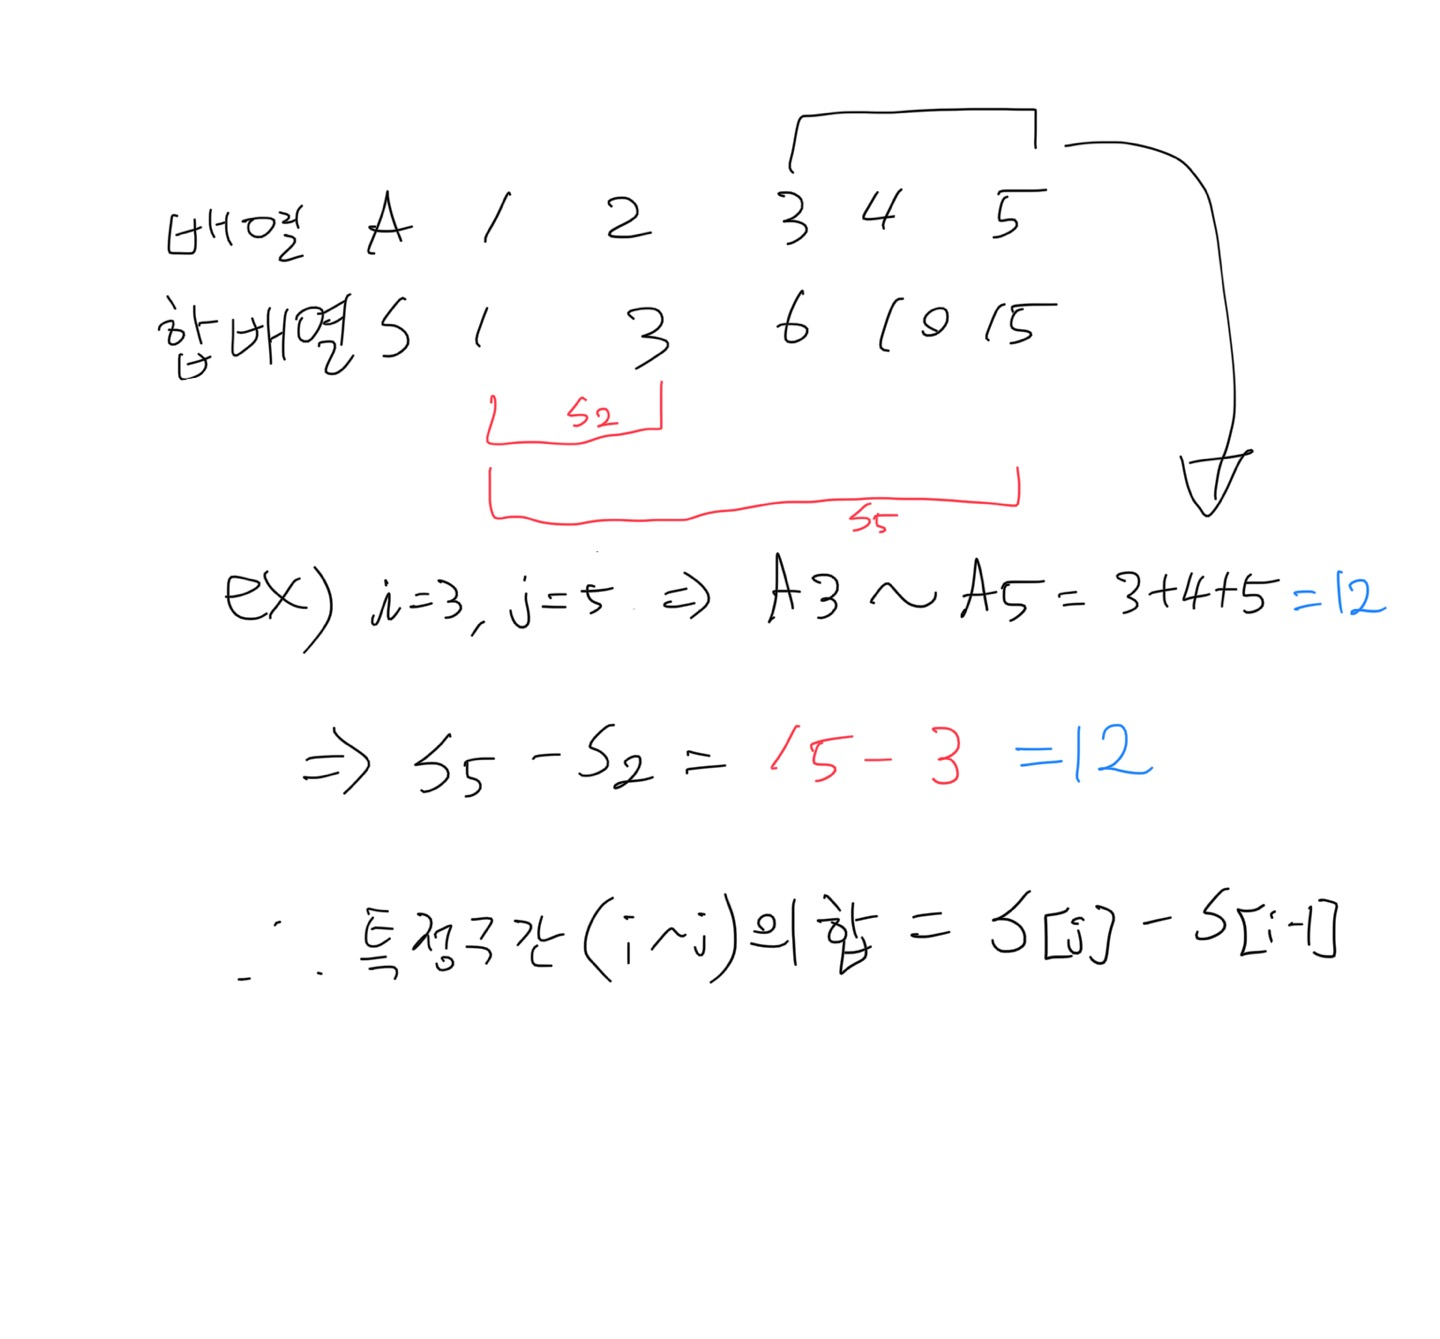 배열 A 1 2 3 4 5
합배열 S 1 3 6 10 15
S2
S5
ex) i=3, j=5 ⇒ A3 ~ A5 = 3+4+5 =12
⇒ S5 - S2 = 15 - 3 =12
∴ 특정구간(i~j)의 합 = S[j] - S[i-1]